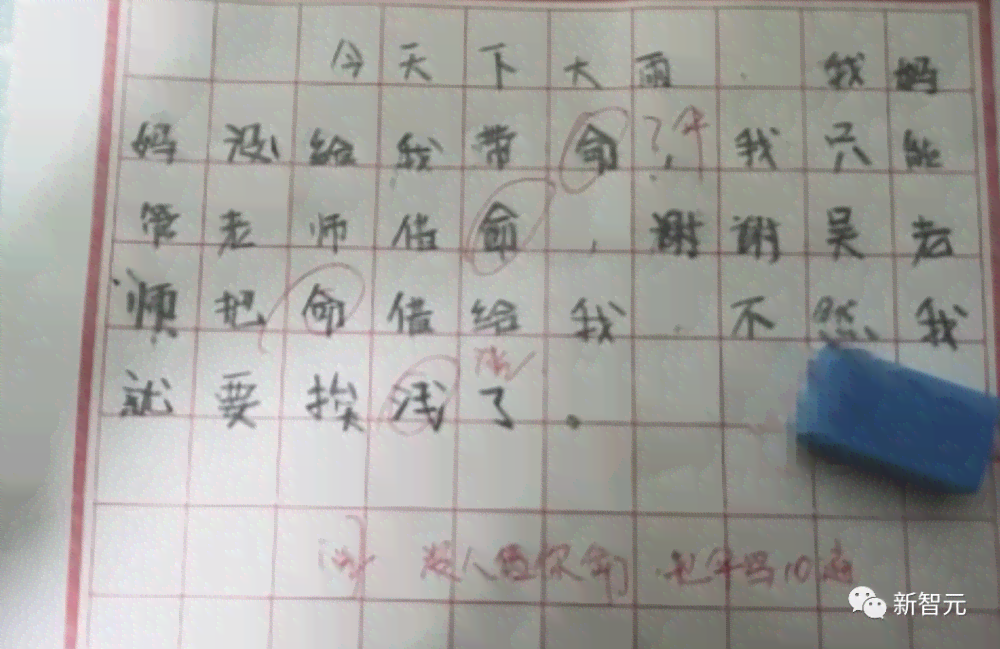 今天下大雨,我妈
妈没给我带命?伞,我只能
管老师借命,谢谢吴老
师把命借给我,不然我
就要挨浅了。
没人借你命 把伞写10遍
新智元